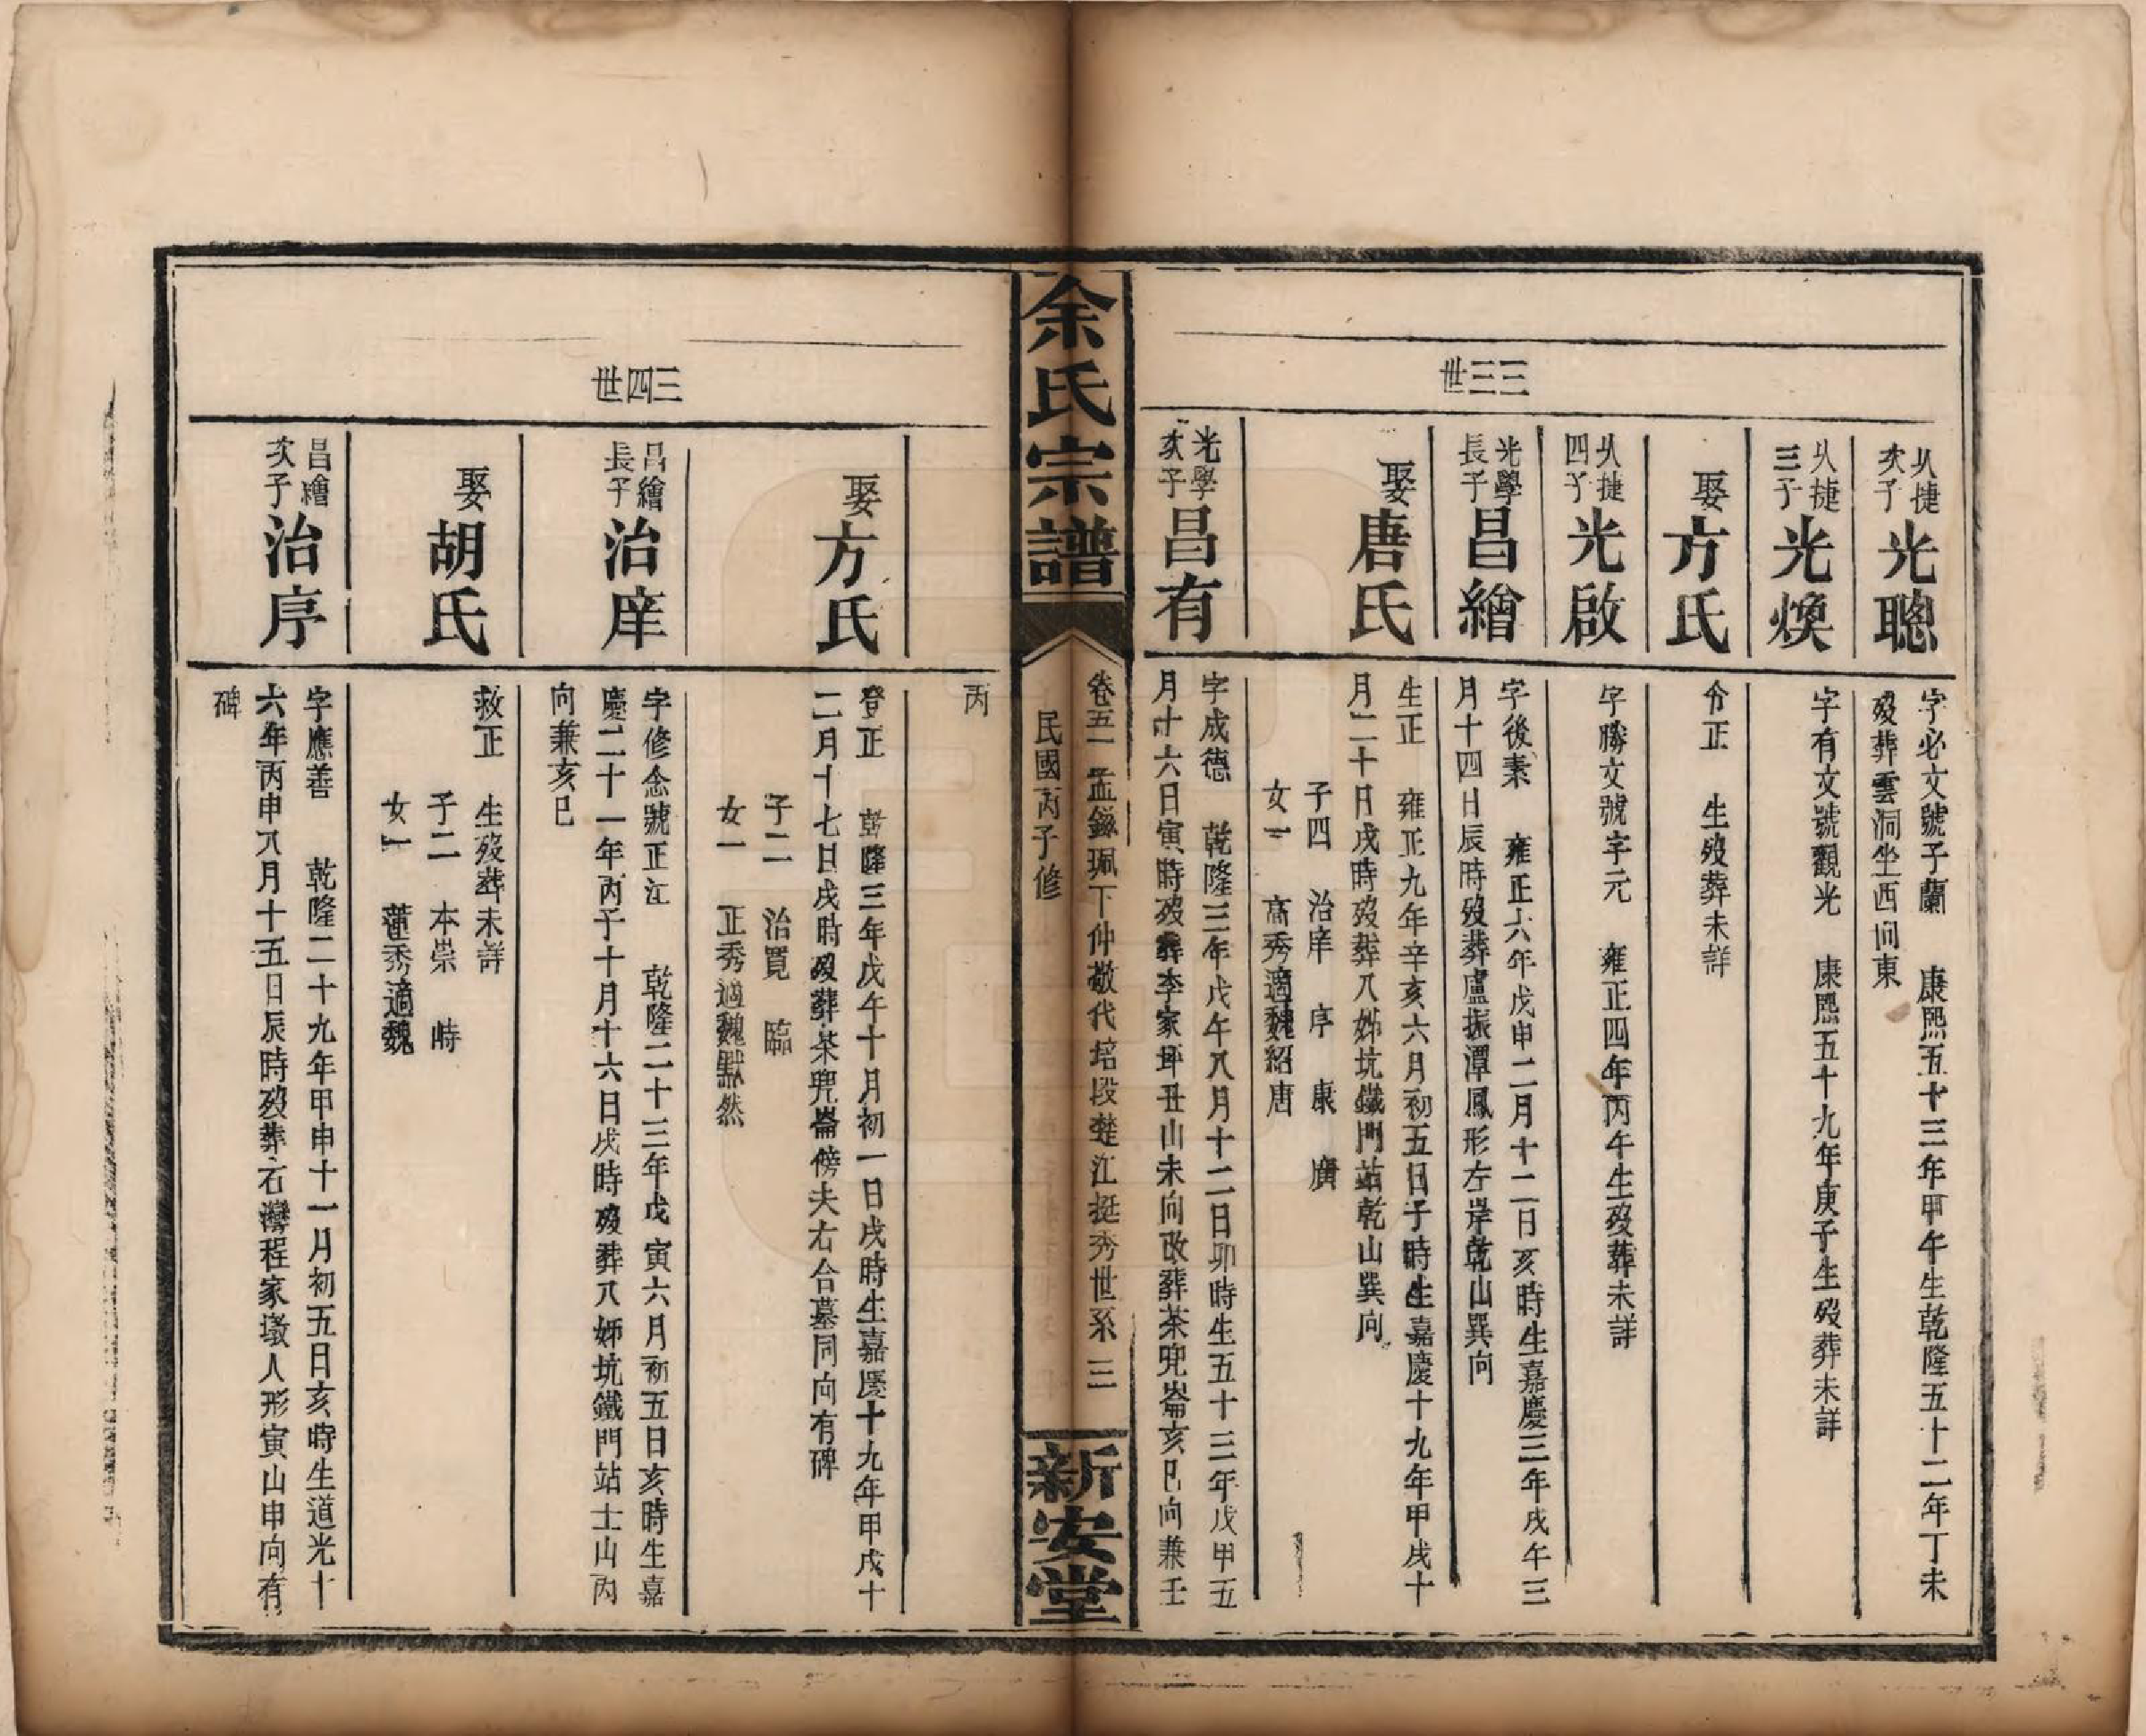 三三世
乆捷
次子
光聰
字必文號子蘭 康熙五十三年甲午生乾隆五十二年丁未
歿葬雲洞坐西向東
乆捷
三子
光煥
字有文號觀光 康熙五十九年庚子生歿葬未詳
娶
方氏
令正 生歿葬未詳
乆捷
四子
光啟
字勝文號字元 雍正四年丙午生歿葬未詳
光學
長子
昌繪
字後素 雍正六年戊申二月十二日亥時生嘉慶三年戊午三
月十四日辰時歿葬盧振潭鳳形左岸乾山巽向
娶
唐氏
生正 雍正九年辛亥六月初五日子時生嘉慶十九年甲戌十
月二十日戌時歿葬八姊坑鐵門站乾山巽向
子四 治庠 序 康 賡
女一 高秀適魏紹唐
光學
次子
昌有
字成德 乾隆三年戊午八月十二日卯時生五十三年戊甲五
月十六日寅時歿葬李家坪丑山未向改葬茶兜崙亥巳向兼壬
余氏宗譜
卷五一 孟錄珮下仲敬代培段楚江挺秀世系 三
民國丙子修
新安堂
丙
三四世
娶
方氏
登正 乾隆三年戊午十月初一日戌時生嘉慶十九年甲戌十
二月十七日戌時歿葬茶兜崙傍夫右合墓同向有碑
子二 治覓 臨
女一 正秀適魏默然
昌繪
長子
治庠
字修念號正江 乾隆二十三年戊寅六月初五日亥時生嘉
慶二十一年丙子十月十六日戌時歿葬八姊坑鐵門站士山丙
向兼亥巳
娶
胡氏
救正 生歿葬未詳
子二 本崇 時
女一 蓮秀適魏
昌繪
次子
治序
字應善 乾隆二十九年甲申十一月初五日亥時生道光十
六年丙申八月十五日辰時歿葬石灣程家墩人形寅山申向有
碑